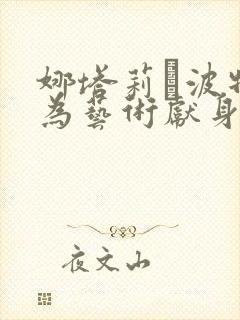 娜塔莉·波特
為藝術獻身
夜文山